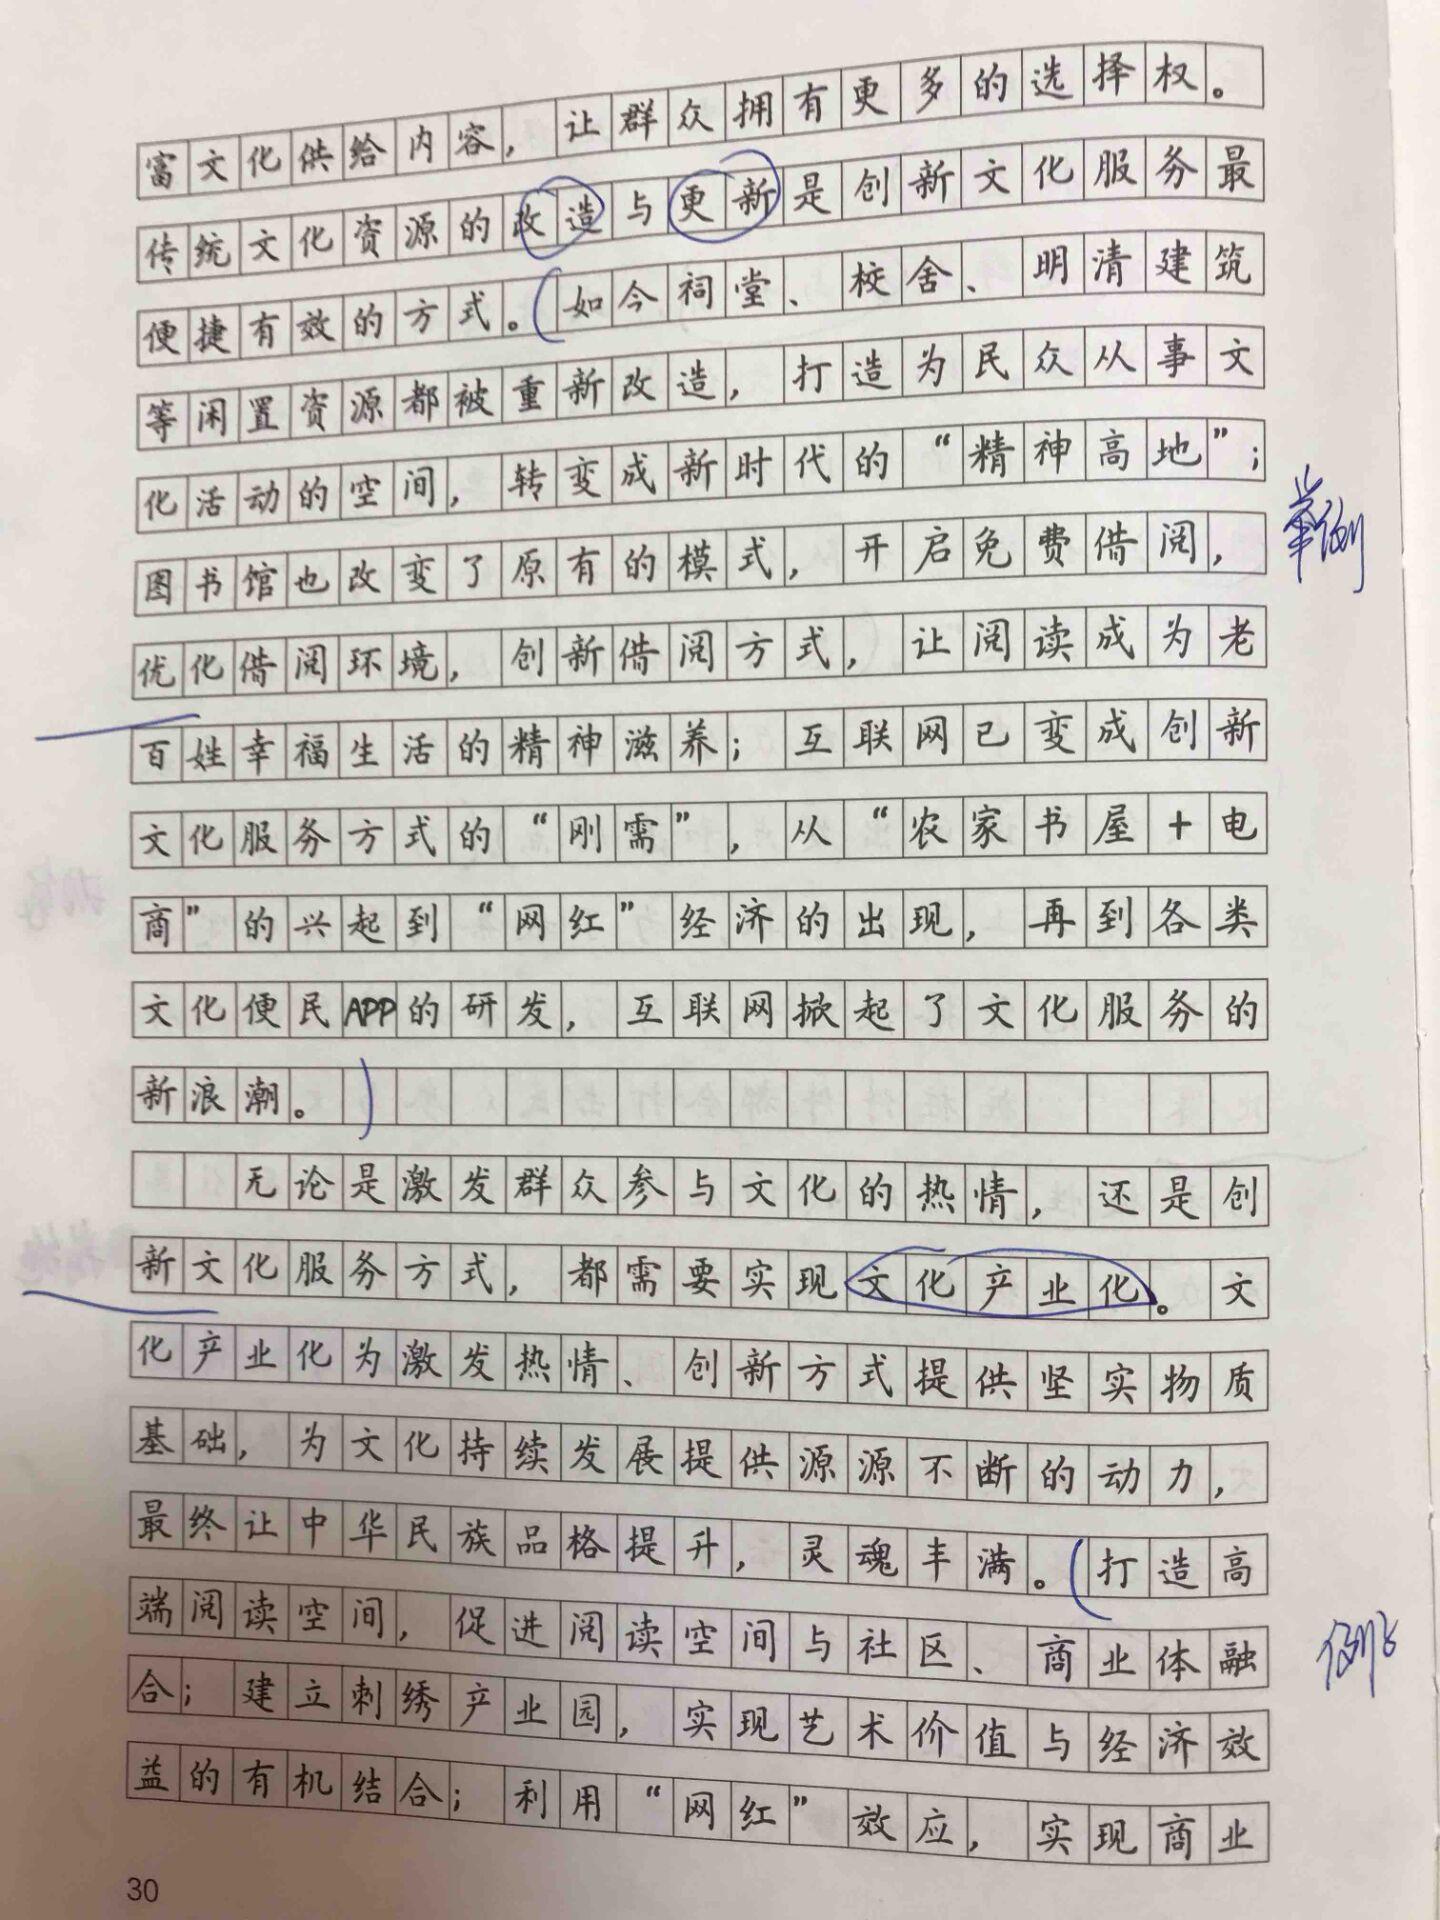 富文化供给内容，让群众拥有更多的选择权。
传统文化资源的改造与更新是创新文化服务最
便捷有效的方式。(如今祠堂、校舍、明清建筑
等闲置资源都被重新改造，打造为民众从事文
化活动的空间，转变成新时代的“精神高地”；
图书馆也改变了原有的模式，开启免费借阅，
举例
优化借阅环境，创新借阅方式，让阅读成为老
百姓幸福生活的精神滋养；互联网已变成创新
文化服务方式的“刚需”，从“农家书屋＋电
商”的兴起到“网红”经济的出现，再到各类
文化便民APP的研发，互联网掀起了文化服务的
新浪潮。)
无论是激发群众参与文化的热情，还是创
新文化服务方式，都需要实现文化产业化。文
化产业化为激发热情、创新方式提供坚实物质
基础，为文化持续发展提供源源不断的动力，
最终让中华民族品格提升，灵魂丰满。(打造高
端阅读空间，促进阅读空间与社区、商业体融
合；建立刺绣产业园，实现艺术价值与经济效
益的有机结合；利用“网红”效应，实现商业
30